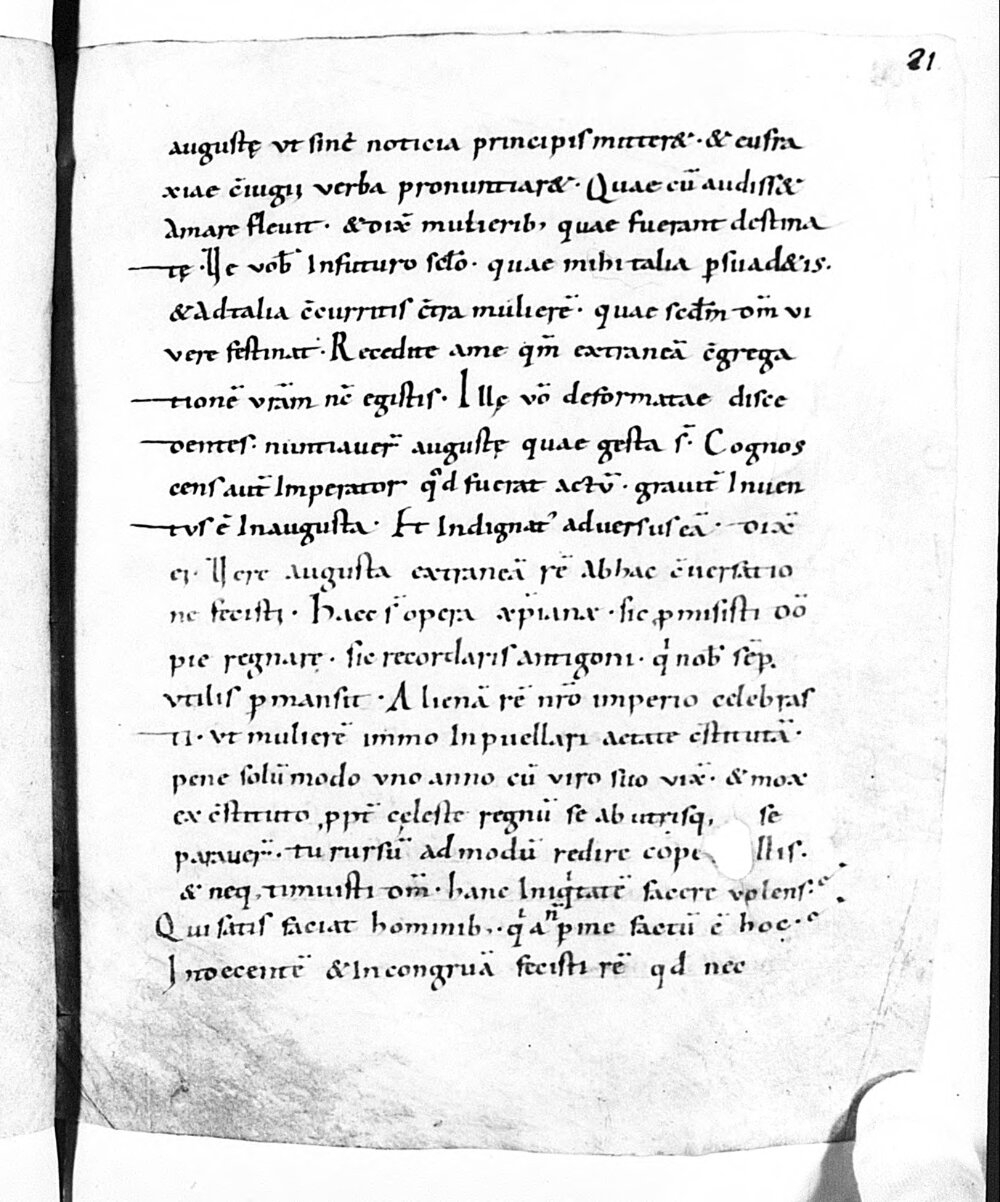 21
augustę ut sinē noticia principis mitter& · & eufra
xiae c̄iugii verba pronuntiar& · Quae cū audiss&
Amare flevit · & dix̄ mulierib; quae fuerant destina
tę · Ve vob̄ Infuturo sclo̅ · quae mihi talia p̲suad&is ·
& Ad talia c̄curritis c̄tra mulierē · quae scd̄m dm̄ vi
vere festinat · Recedite a me qm̄ extraneā c̄grega
tionē vr̄am nc̄ egistis · Illę vō deformatae disce
dentes · nuntiaver̄ augustę quae gesta s̄ · Cognos
cens aut̄ Imperator qd̄ fuerat actū · gravit̄ Inuen
tus ē In augusta · Et Indignat' adversus eā · dix̄
ei · Vere augusta extraneā rē Ab hac c̄versatio
ne fecisti · Haec s̄ opera xp̄iana · sic p̲misisti dō
pie regnarę · sic recordaris antigoni · qi nob̄ sēp̲
utilis p̲mansit · Alienā rē nr̄o imperio celebras
ti · ut mulierē immo In puellari aetate c̄stitutā ·
pene solūmodo uno anno cū viro suo vix̄ · & mox
ex c̄stituto ppt̄ cęleste regnū se ab utrisq; se
paraver̄ · tu rursū ad modū redire cōpe llis ·
& neq; timuisti dm̄ · hanc Iniqitatē facere volens ·
Qui satis faciat hominib; · qia n̄ p̲ me factū ē hoc ·
Indecentē & Incongruā fecisti rē qd nec